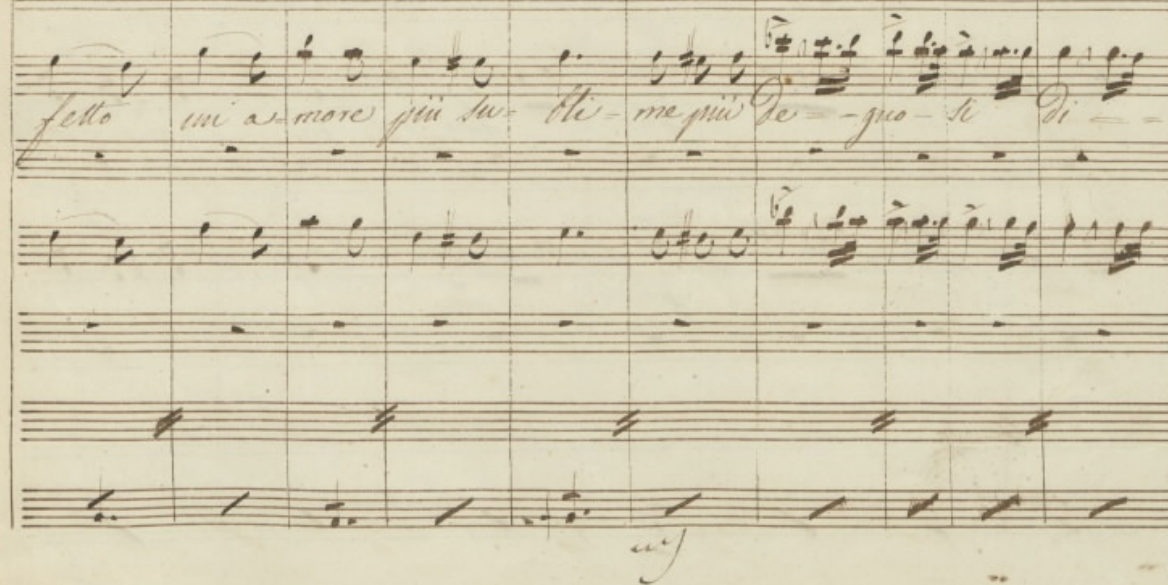 fetto un a-more più su-bli-me più de--gno-si di---